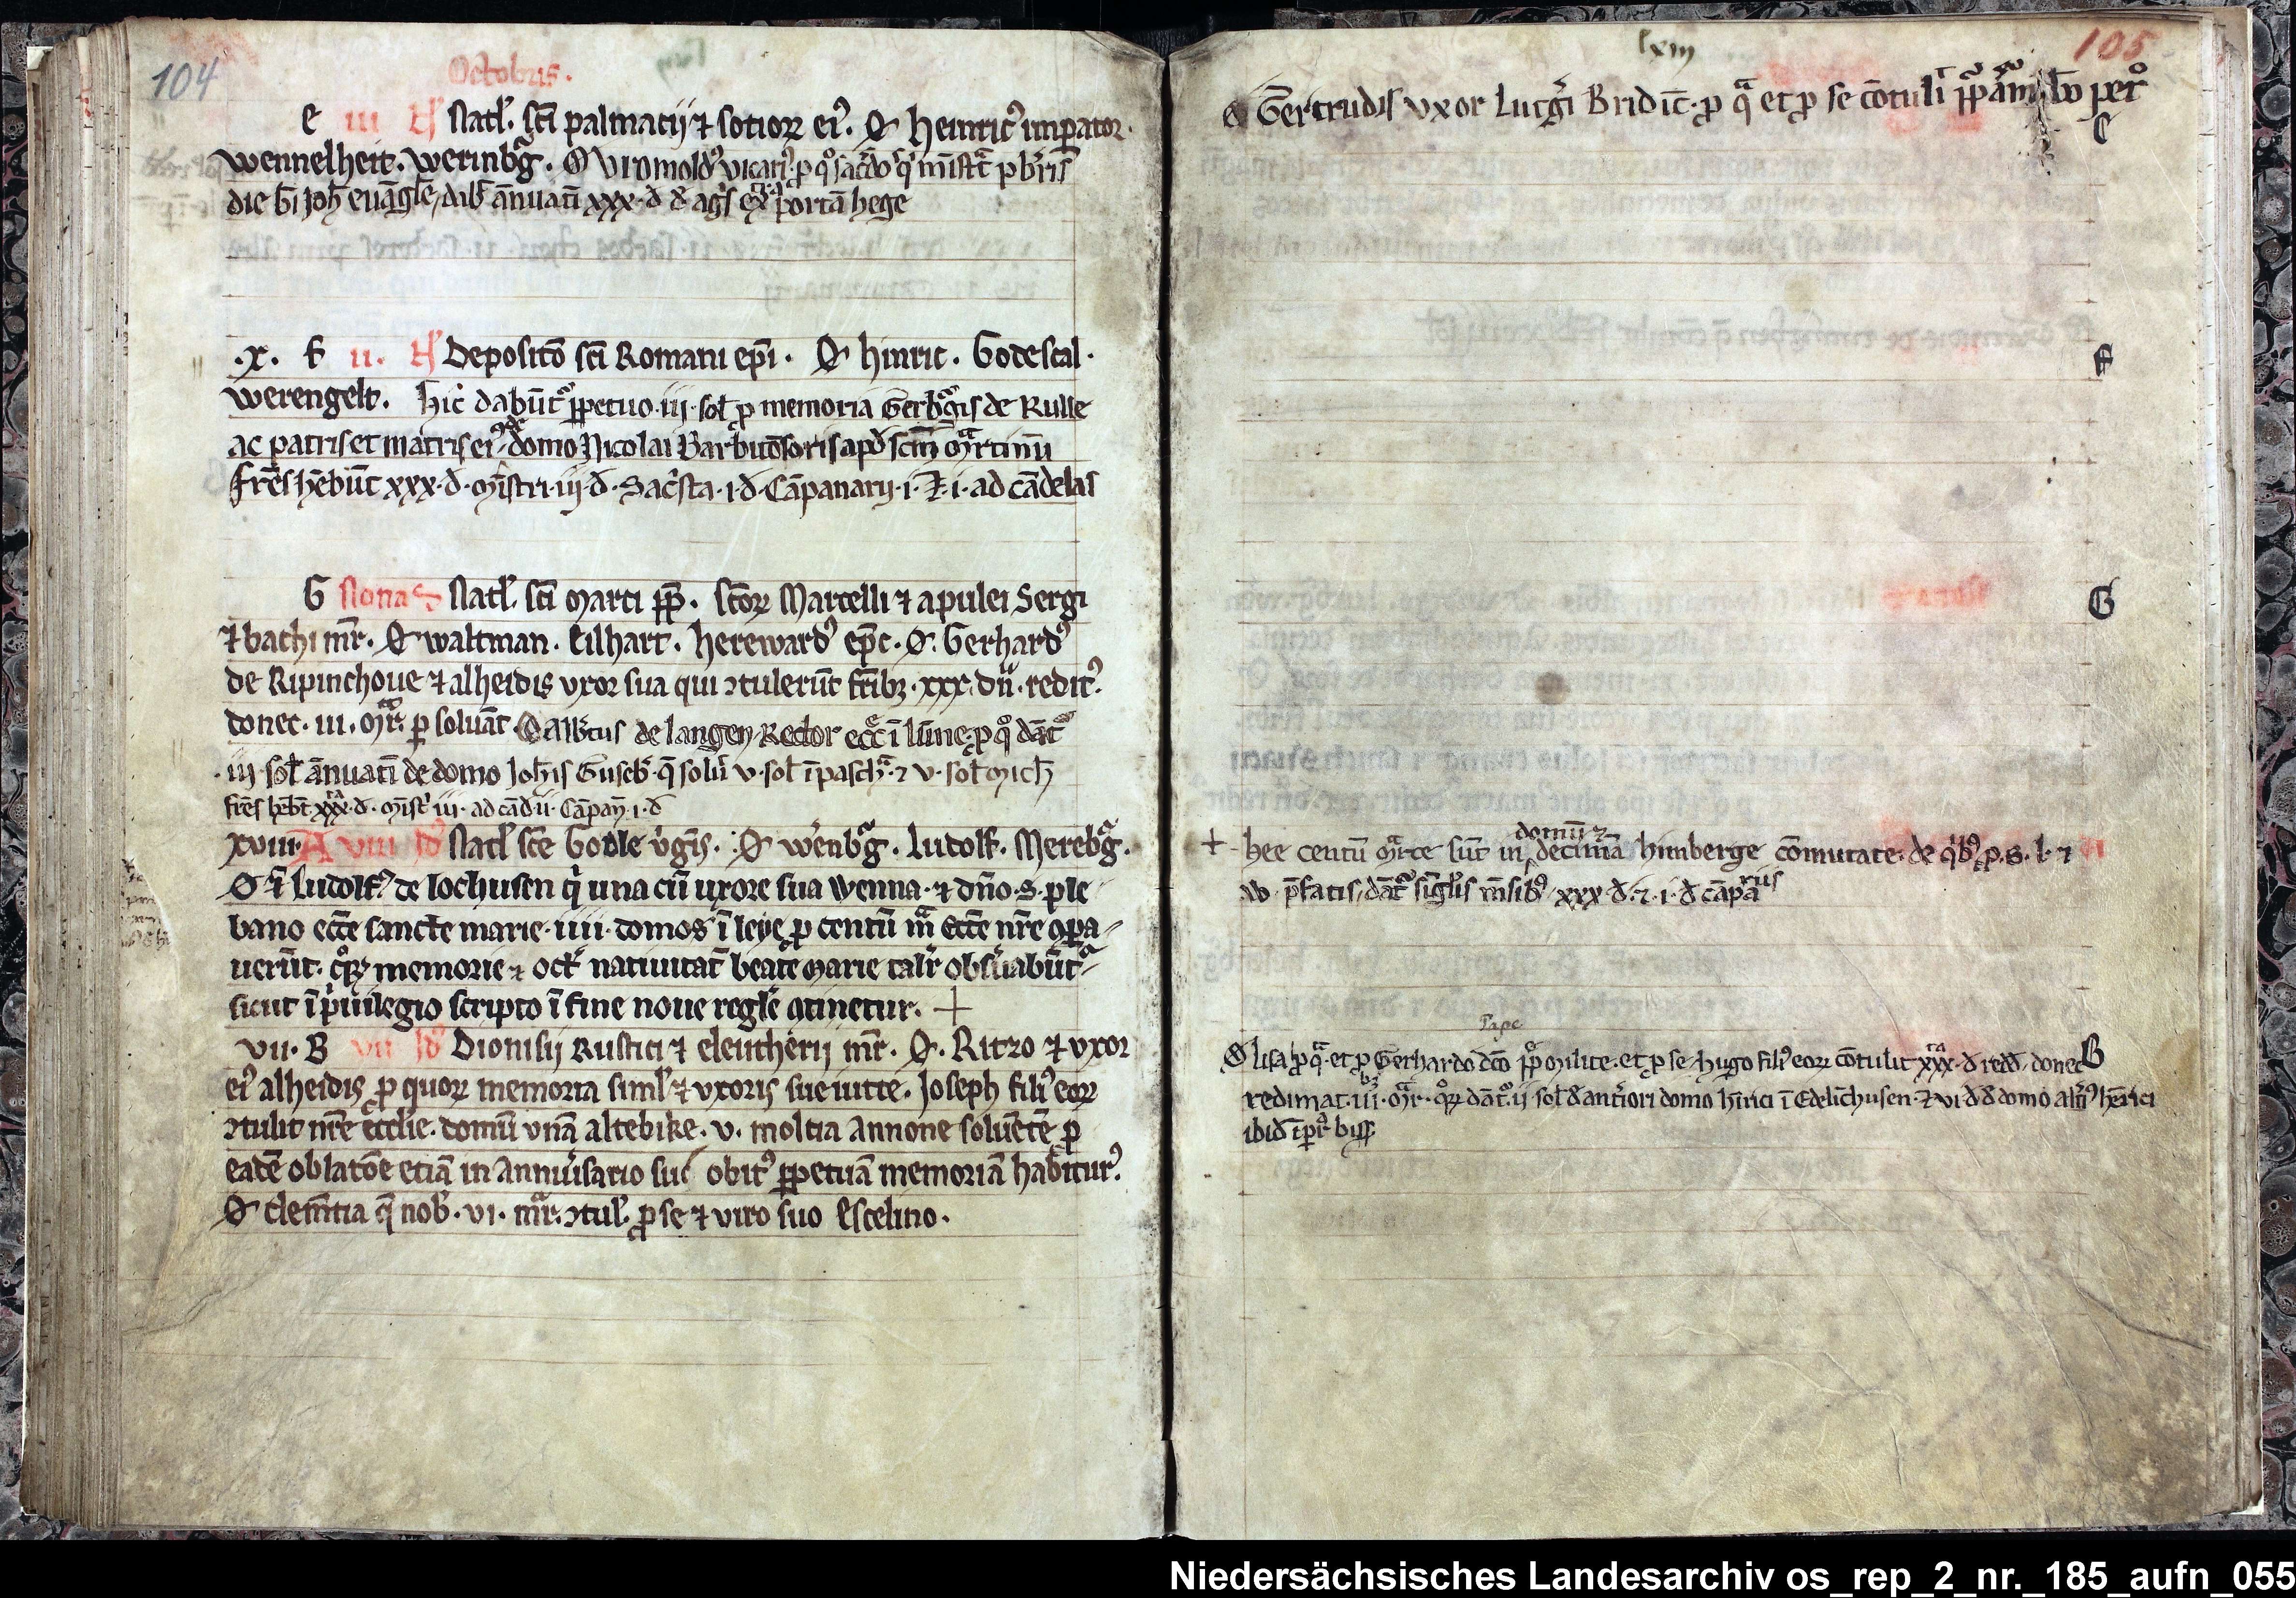 104
Octobris.
e iii N̄ Natl'. sc̄i palmacij ⁊ socioꝝ ei'. O heinric' imp̄ator.
wennelheit. werinbg̃. O Vromold' vicari'. p q° sac̄do q' mīst̃t p br̄is
die b̄i Joh̄ euāgl̄e, dab̄t ānuatī xxx. d
portā hege
.x. f ii. N̄ Deposicō sc̄i Romani ep̄i. O hinric. Godescal.
werengelt. hic dabūt̃ ꝑpetuo. iij. sol ꝓ memoria Gerbgis de Rulle
ac patris et matris ei' de domo Nicolai Barbitōsoris apd̄ scm̄ Mr̃tinū
frēs hēbūt xxx. d. Mīstri. iij. d. Sac'sta. i. d. Cāpanarij. i. ⁊. i. ad cādelas
G Nonas Natl'. sc̄i Marci p̄p̄. sc̄oꝝ Marcelli ⁊ apulei Sergi
⁊ bachi mr̄. O waltman. Eilhart. hereward' ep̄c. O. Gerhard'
de Ripinchoue ⁊ alheidis vxor sua qui ꝯtulerūt fr̄ibꝫ. xxx. dn̄. redit'.
donec. iii. mr̃. ꝑsoluāt. O Alb̄tus de langen Rector ecc̄ ī lune, ꝓ q° dāt̃
iij. sol ānuatī de domo Joh̄is Guseb̄. q̄ solū v. sol ī pasch̃. ⁊ v. sol Mich̄
frēs hēbt xxx. d. Mist' iii. ad cād ii. Cāpan̄. i. d
xviii. A viii Id' Natl' sc̄e Godle v̄gis. O wēnbg̃. Ludolf. Merebg̃.
O Ludolf' de lochusen q̄ una cū uxore sua wenna. ⁊ dn̄o. S. ple
bano ecc̄e sancte marie. iiii. domos ī leye ꝓ centū mr̃ ecc̄e nr̄e ꝯpa
uerūt. q°ꝝ memorie ⁊ oct̄ natiuitat̄ beate Marie talr̄ obs̄uabūt̃
sicut ī p'uilegio scripto ī fine noue regle ꝯtinetur. +
vii. B vii Id' Dionisij Rustici ⁊ eleutherij mr̄. O. Ritzo ⁊ vxor
ei' alheidis ꝓ quoꝝ memoria siml' ⁊ vxoris sue iutte. Joseph fili' eoꝝ
ꝯtulit nr̄e ecclie. domū vnā altebike. v. moltia annone soluētē ꝓ
eadē oblatōe etiā in anniu̅sario sui obit' ꝑpetuā memoriā habitur'.
O clem̄tia q̄ nob'. vi. mr̃. ꝯtul'. ꝓ se ⁊ viro suo Escelino.
lxiii
105
O Gertrudis vxor Lutḡi Bridīt. ꝓ q̃ et ꝓ se cōtuli
e
F
G
+ hee centū Mr̃ce sūt in decimā himberge cōmutate. de q'b', ꝓ. S. l. ⁊
domū ⁊
w. p̄fatis, dāt̃ sīglis m̄sib' xxx. d. ⁊. i. d cāpariis
Pape
O lisa ꝓ q̃. et ꝓ Gerhardo dc̄o milite. et ꝓ se. hugo fili' eoꝝ cōtulit xxx. d redd. donec B
redimat. iii. Mr̃. q°ꝝ dāt̃. ij sol de ant̄iori domo hīrici ī Edelīchusen. ⁊ vi d de domo alt̄i' hērici
ibid̄
Niedersächsisches Landesarchiv os_rep_2_nr._185_aufn_055